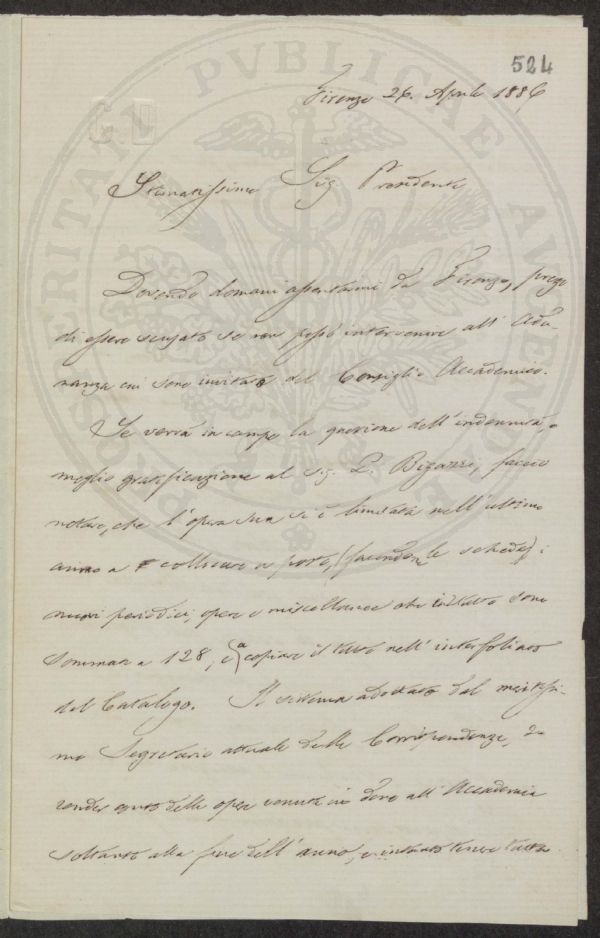 524
Firenze 26. Aprile 1886
Stimatissimo Sig. Presidente
Dovendo domani assentarmi da Firenze, prego
di essere scusato se non posso intervenire all' Adu-
nanza cui sono invitato del Consiglio Accademico.
Se verrà in campo la quistione dell' indennità, o
meglio gratificazione al Sig. L. Bigazzi, faccio
notare, che l' opera sua si è limitata nell' ultimo
anno a collocare a posto, (facendone le schede) i
nuovi periodici, opere e miscellanee che in tutto sono
sommate a 128, e a copiare il tutto nell' interfoliato
del Catalogo. Il sistema adottato dal meritissi-
mo Segretario attuale delle Corrispondenze, di
render conto delle opere venute in dono all' Accademia
soltanto alla fine dell' anno, e intanto tenere
PROSPERITATI PVBLICAE AVGENDAE